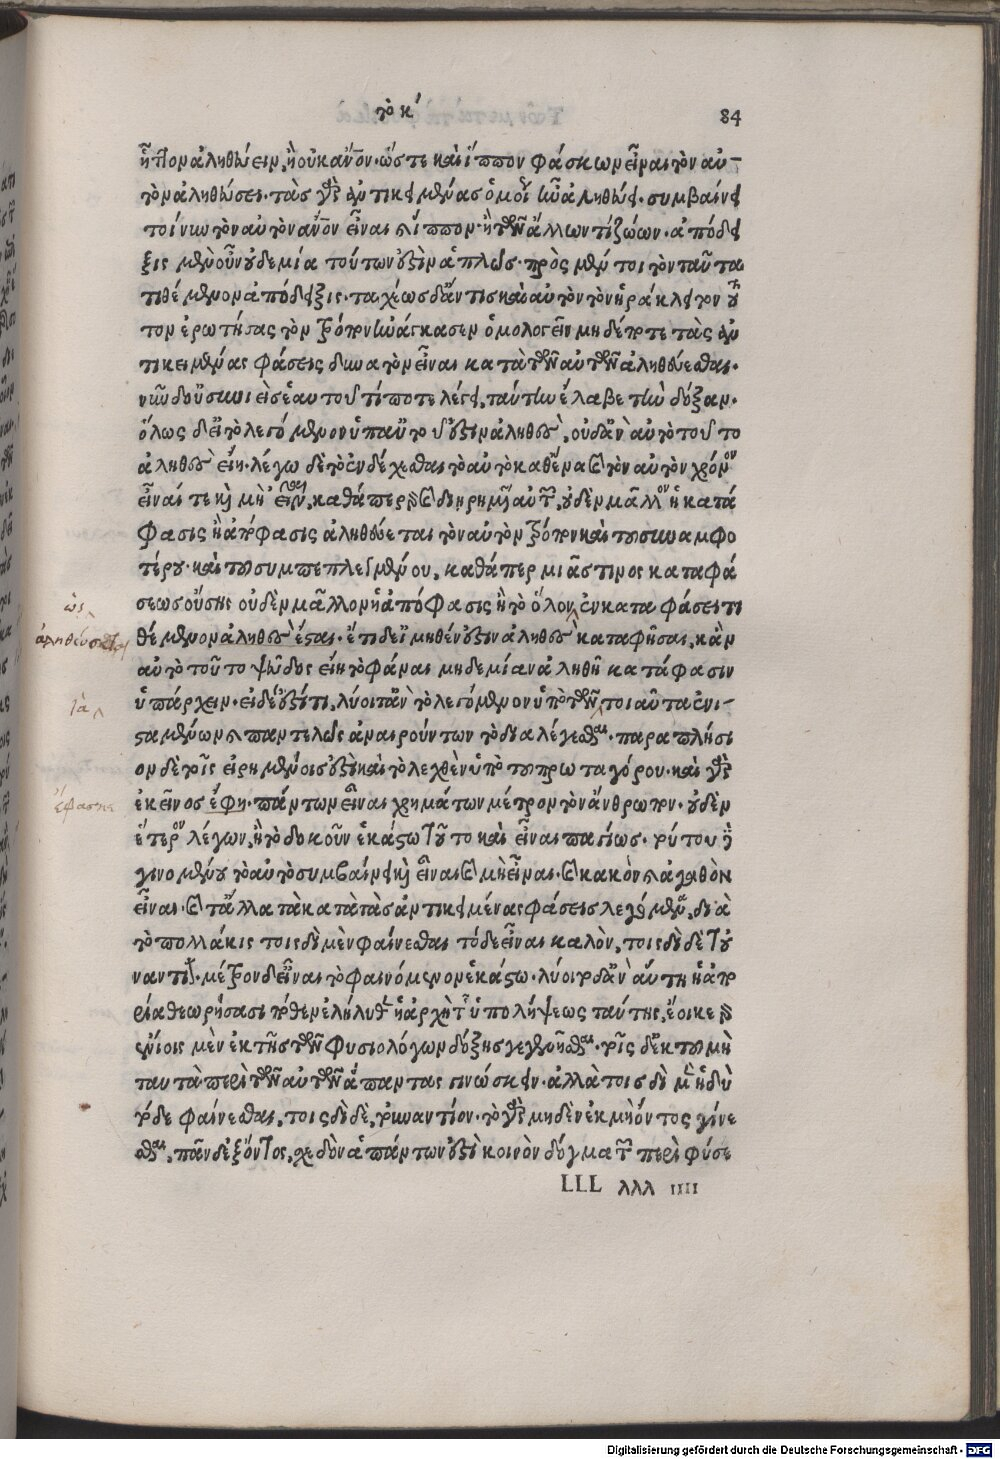 τὸ κ´ 84
ἧττον ἀληθεύειν, ἢ οὐκ ἄνθρωπον· ὥστε καὶ ἵππον φάσκων εἶναι τὸν αὐ-
τὸν ἀληθεύσει. τὰς γὰρ ἀντικειμένας ὁμοίως ἦν ἀληθεύειν· συμβαίνει
τοίνυν τὸν αὐτὸν ἄνθρωπον εἶναι καὶ ἵππον· ἢ τῶν ἄλλων τι ζώων· ἀπόδει
ξις μὲν οὖν οὐδεμία τούτων ἐστὶν ἁπλῶς· πρὸς μέντοι τὸν ταῦτα
τιθέμενον ἀπόδειξις. ταχέως δ' ἄν τις καὶ αὐτὸν τὸν ἡράκλειτον τοῦ
τον ἐρωτήσας τὸν τρόπον ἠνάγκασεν ὁμολογεῖν μηδέποτε τὰς ἀν
τικειμένας φάσεις δυνατὸν εἶναι κατὰ τῶν αὐτῶν ἀληθεύεσθαι·
νῦν δ' οὐ συνιεὶς ἑαυτοῦ τί ποτε λέγει, ταύτην ἔλαβε τὴν δόξαν·
ὅλως δ' εἰ τὸ λεγόμενον ὑπ' αὐτοῦ ἐστιν ἀληθὲς, οὐδ' ἂν αὐτὸ τοῦτο
ἀληθὲς εἴη· λέγω δὲ τὸ ἐνδέχεσθαι τὸ αὐτὸ καθ' ἕνα καὶ τὸν αὐτὸν χρόνον
εἶναί τε καὶ μὴ εἶναι, καθάπερ γὰρ καὶ διῃρημένων αὐτῶν, οὐδὲν μᾶλλον ἡ κατά
φασις ἢ ἀπόφασις ἀληθεύεται τὸν αὐτὸν τρόπον καὶ τοῦ συναμφο
τέρου· καὶ τοῦ συμπεπλεγμένου, καθάπερ μιᾶς τινος καταφά
σεως οὔσης οὐδὲν μᾶλλον ἡ ἀπόφασις ἢ τὸ ὅλον ἐν καταφάσει τι
ὡς
ἀληθεύσεται
θέμενον ἀληθὲς ἔσται· ἔτι δ' εἰ μηθέν ἐστιν ἀληθὲς καταφῆσαι, κἂν
αὐτὸ τοῦτο ψεῦδος εἴη τὸ φάναι μηδεμίαν ἀληθῆ κατάφασιν
ὑπάρχειν· εἰ δ' ἔστι τι, λύοιτ' ἂν τὸ λεγόμενον ὑπὸ τῶν τοιαῦτα ἐνι-
τὰ
σταμένων καὶ παντελῶς ἀναιρούντων τὸ διαλέγεσθαι· παραπλήσι
ον δὲ τοῖς εἰρημένοις ἐστὶ καὶ τὸ λεχθὲν ὑπὸ τοῦ πρωταγόρου· καὶ γὰρ
ἐκεῖνος ἔφη· πάντων εἶναι χρημάτων μέτρον τὸν ἄνθρωπον· οὐδὲν
ἕτερον λέγων, ἢ τὸ δοκοῦν ἑκάστῳ τοῦτο καὶ εἶναι παγίως· τούτου δὲ
γινομένου τὸ αὐτὸ συμβαίνει καὶ εἶναι καὶ μὴ εἶναι· καὶ κακὸν καὶ ἀγαθὸν
εἶναι· καὶ τἄλλα τὰ κατὰ τὰς ἀντικειμένας φάσεις λεγόμενα, διὰ
τὸ πολλάκις τοισδὶ μὲν φαίνεσθαι τόδε εἶναι καλὸν, τοισδὶ δὲ τοὐ
ναντίον· μέτρον δ' εἶναι τὸ φαινόμενον ἑκάστῳ· λύοιτο δ' ἂν αὕτη ἡ ἀπο
ρία θεωρήσασι πόθεν ἐλήλυθεν ἡ ἀρχὴ τῆς ὑπολήψεως ταύτης, ἔοικε γὰρ
ἐνίοις μὲν ἐκ τῆς τῶν φυσιολόγων δόξης γεγενῆσθαι· τοῖς δ' ἐκ τοῦ μὴ
ταυτὰ περὶ τῶν αὐτῶν ἅπαντας γινώσκειν· ἀλλὰ τοισδὶ μὲν ἡδὺ
τόδε φαίνεσθαι, τοισδὶ δὲ, τοὐναντίον· τὸ γὰρ μηδὲν ἐκ μὴ ὄντος γίνε
σθαι, πᾶν δ' ἐξ ὄντος, σχεδὸν ἁπάντων ἐστὶ κοινὸν δόγμα τῶν περὶ φύσε
LLL λλλ iiii
Digitalisierung gefördert durch die Deutsche Forschungsgemeinschaft - DFG